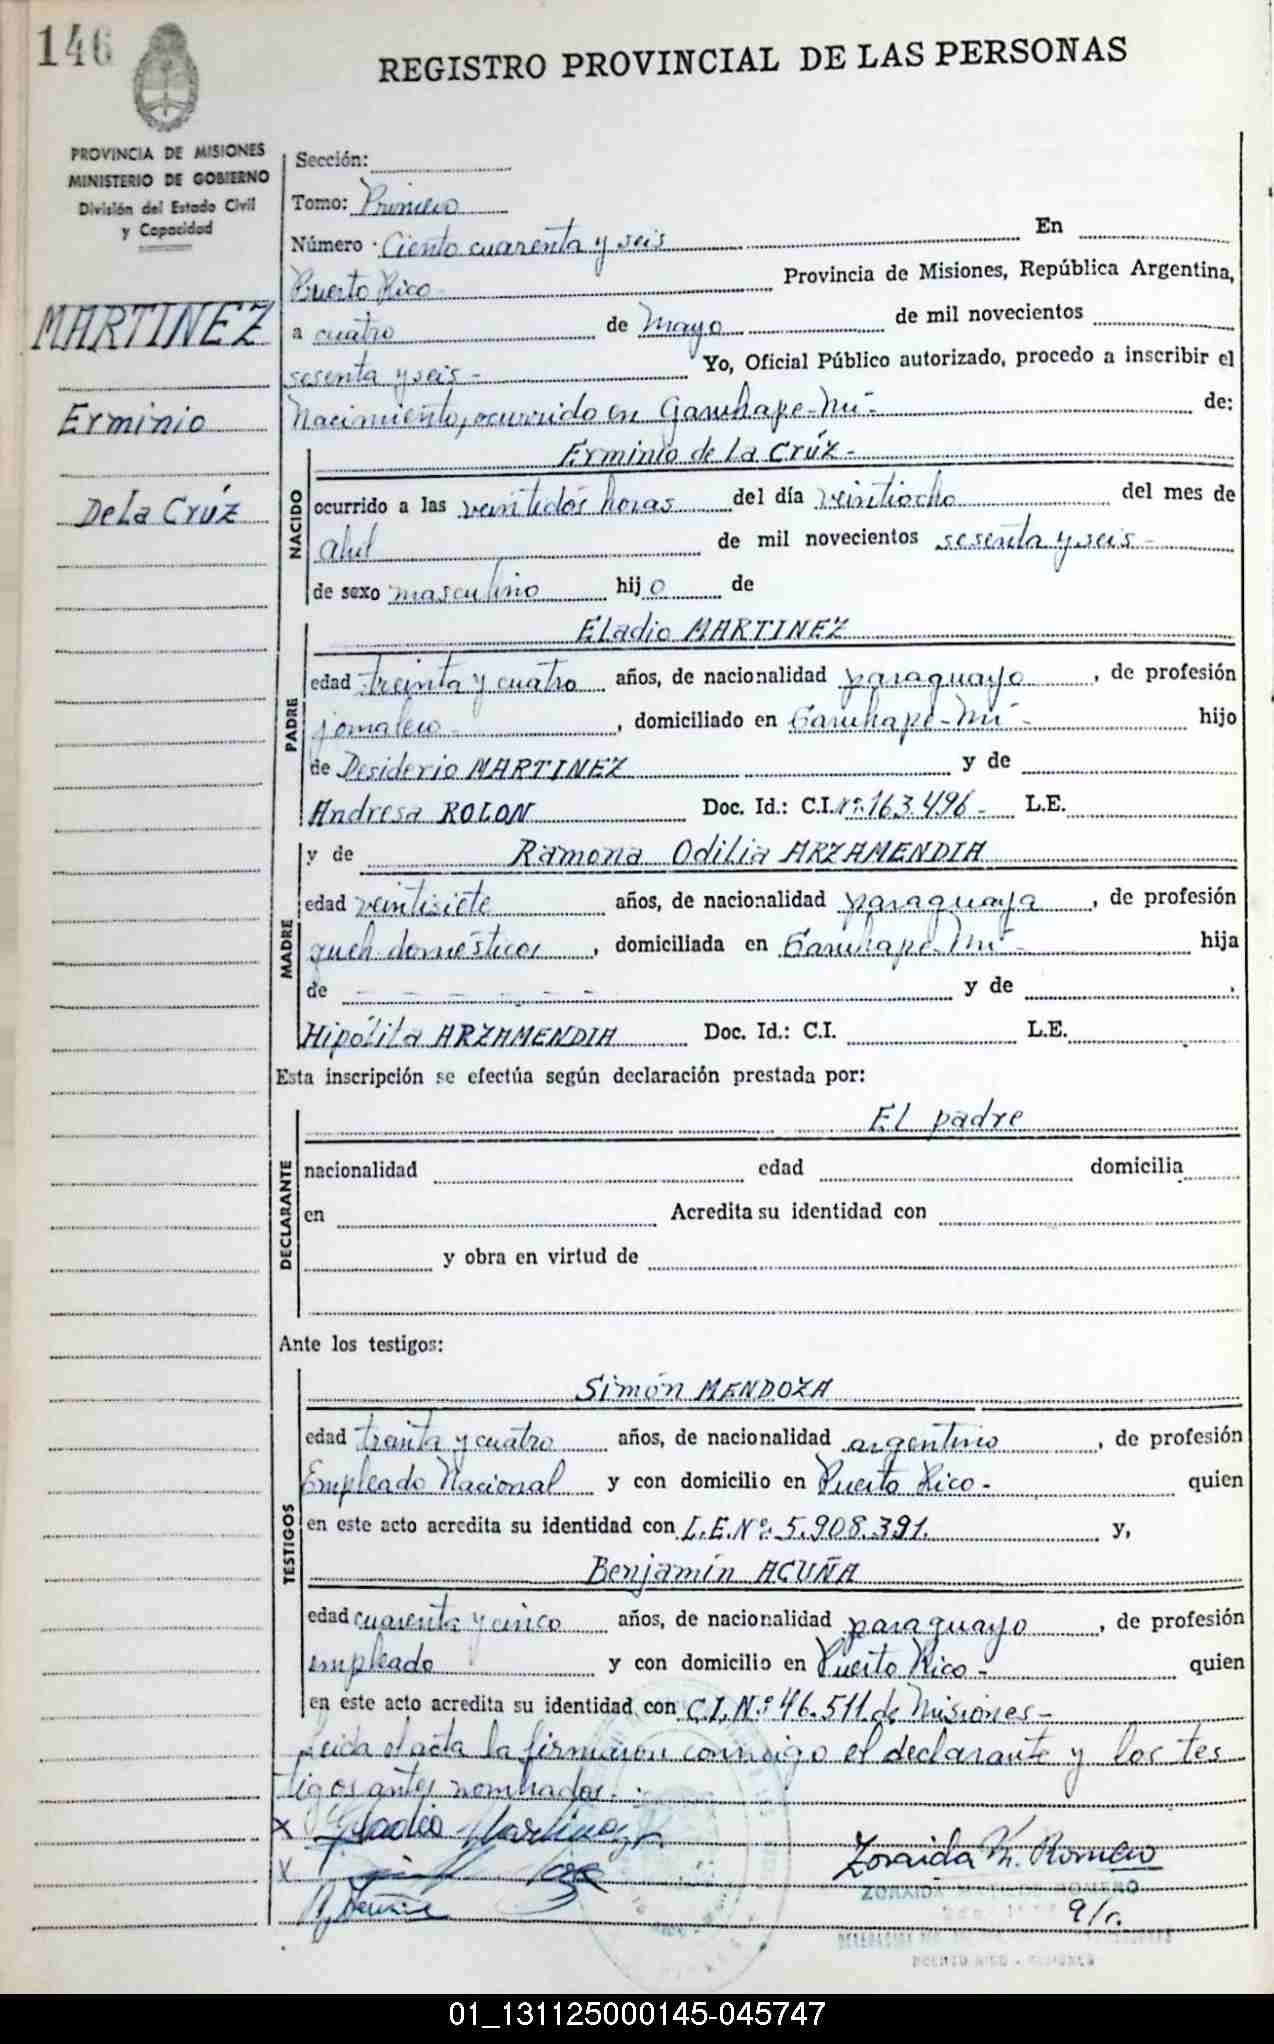 146
REGISTRO PROVINCIAL DE LAS PERSONAS
PROVINCIA DE MISIONES
MINISTERIO DE GOBIERNO
División del Estado Civil
y Capacidad
MARTINEZ
Erminio
De la Crúz
Sección:
Tomo: Primero
Número Ciento cuarenta y seis En
Puerto Rico Provincia de Misiones, República Argentina,
a cuatro de Mayo de mil novecientos
sesenta y seis - Yo, Oficial Público autorizado, procedo a inscribir el
Nacimiento, ocurrido en Garuhape-Mí - de:
NACIDO
Erminio de la Crúz -
ocurrido a las veintidós horas del día veintiocho del mes de
abril de mil novecientos sesenta y seis -
de sexo masculino hijo de
PADRE
Eladio MARTINEZ
edad treinta y cuatro años, de nacionalidad paraguayo, de profesión
jornalero -, domiciliado en Garuhape-Mí - hijo
de Desiderio MARTINEZ y de
Andresa ROLON Doc. Id.: C.I. Nº: 163.496 - L.E.
MADRE
y de Ramona Odilia ARZAMENDIA
edad veintisiete años, de nacionalidad paraguaya, de profesión
queh. domésticos, domiciliada en Garuhape-Mí - hija
de - - - - - y de
Hipólita ARZAMENDIA Doc. Id.: C.I. L.E.
Esta inscripción se efectúa según declaración prestada por:
DECLARANTE
El padre
nacionalidad edad domicilia
en Acredita su identidad con
y obra en virtud de
Ante los testigos:
TESTIGOS
Simón MENDOZA
edad treinta y cuatro años, de nacionalidad argentino, de profesión
Empleado Nacional y con domicilio en Puerto Rico - quien
en este acto acredita su identidad con L.E. Nº: 5.908.391. y,
Benjamín ACUÑA
edad cuarenta y cinco años, de nacionalidad paraguayo, de profesión
empleado y con domicilio en Puerto Rico - quien
en este acto acredita su identidad con C.I. Nº: 46.511 de Misiones -
Leida el acta la firmaron conmigo el declarante y los tes
tigos antes nombrados. -
x Eladio Martinez
x
Zoraida M. Romero
ZORAIDA MATILDE ROMERO
a/c.
PUERTO RICO - MISIONES
01_131125000145-045747